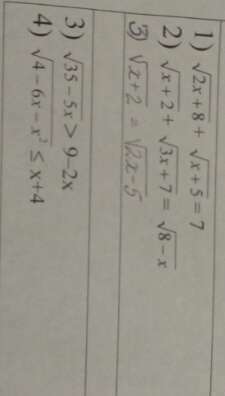 1) √2x+8 + √x+5 = 7
2) √x+2 + √3x+7 = √8-x
3) √x+2 = √2x-5
3) √35-5x > 9-2x
4) √4-6x-x² ≤ x+4